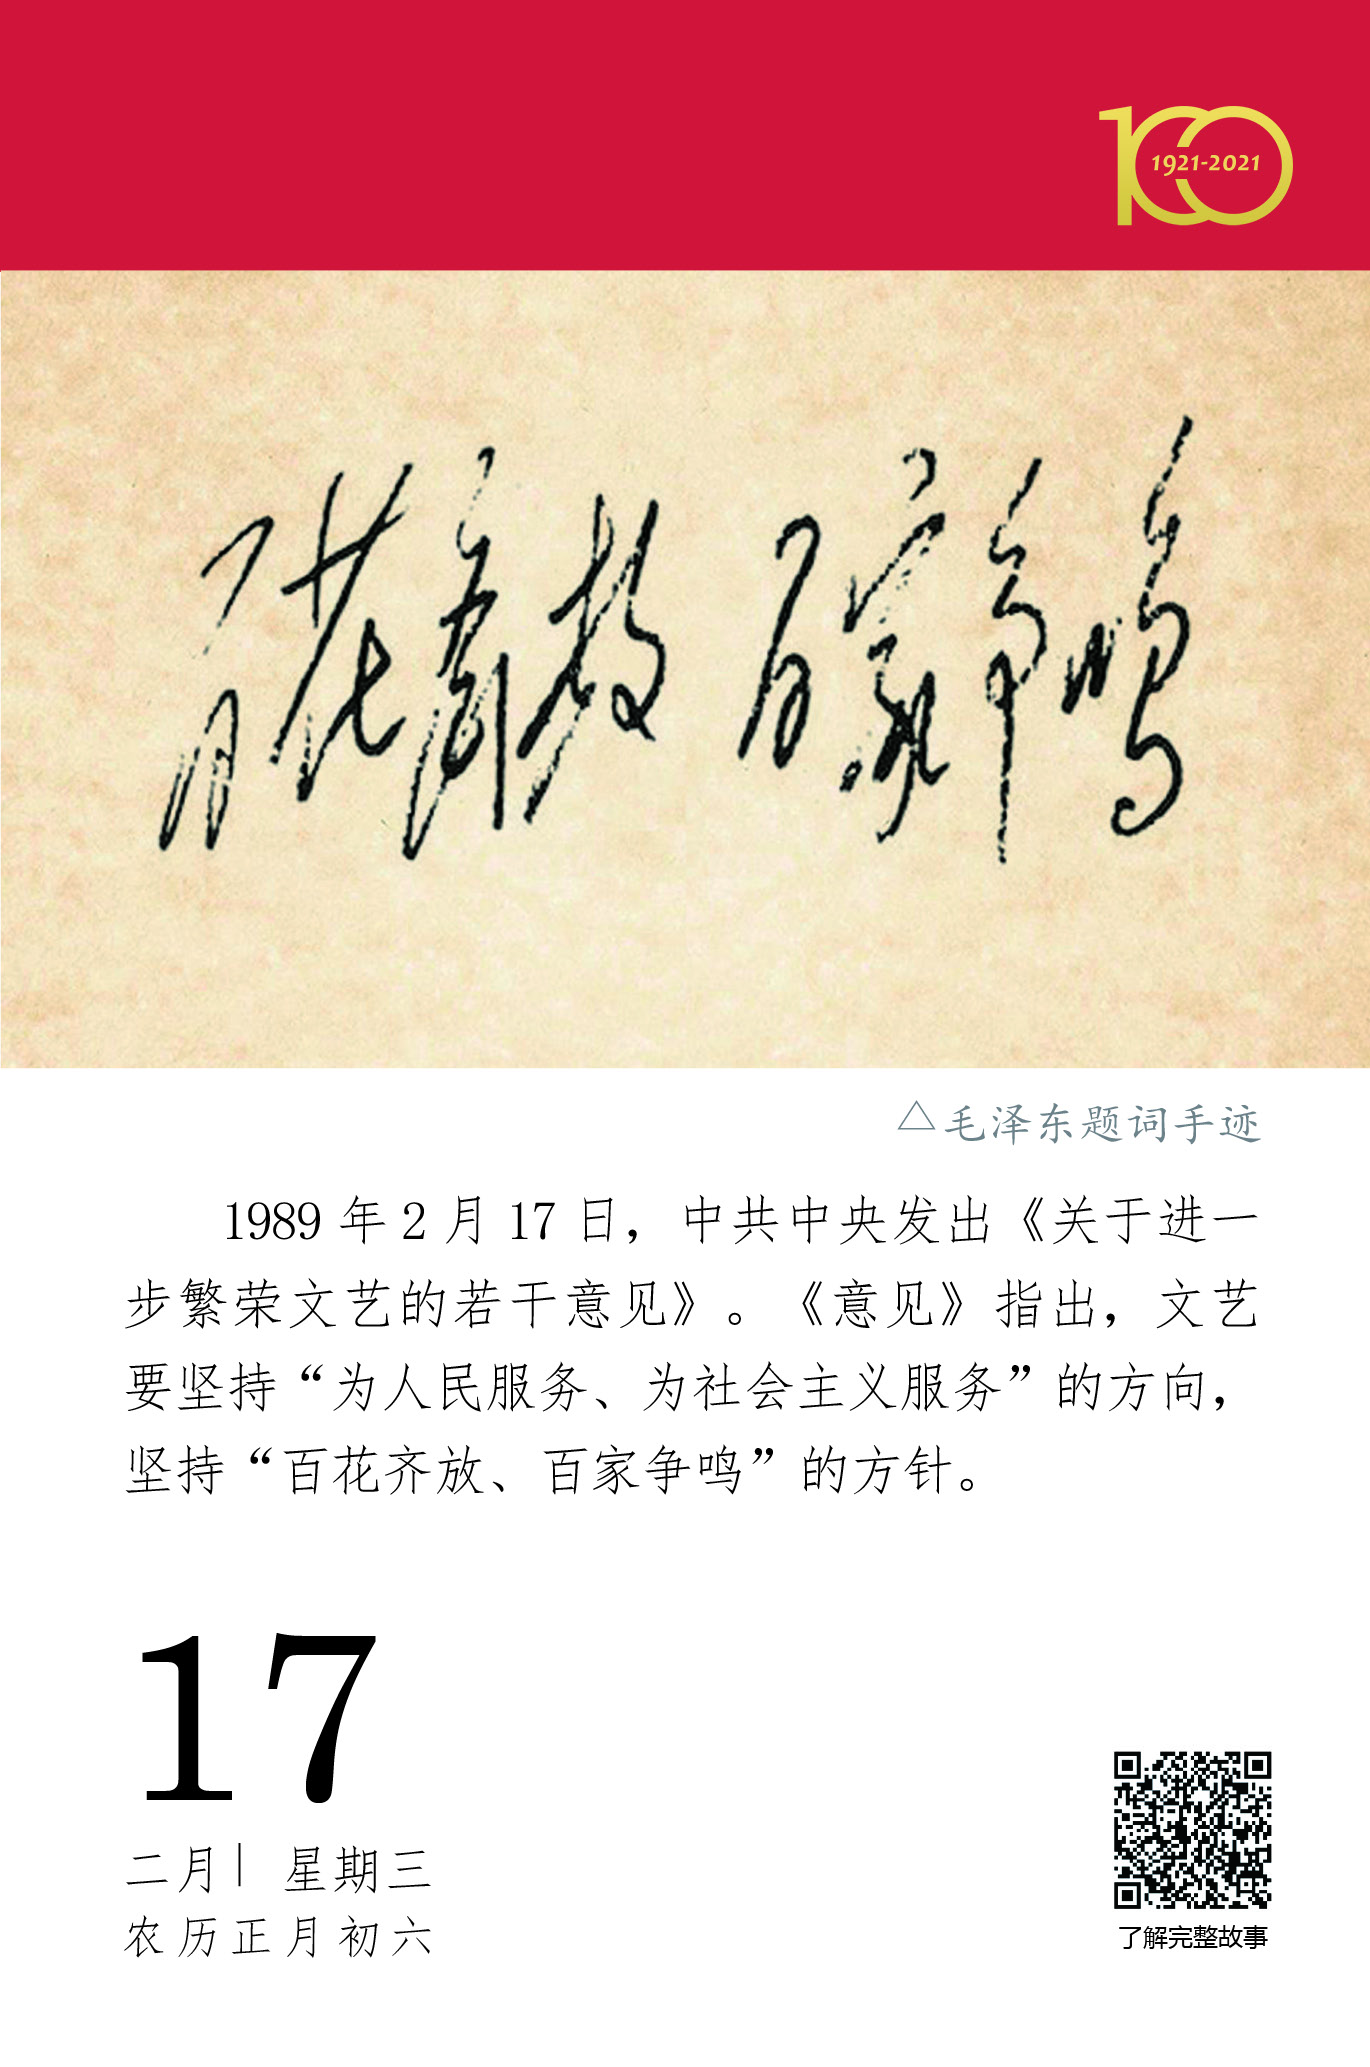 100
1921-2021
百花齐放 百家争鸣
△毛泽东题词手迹
1989 年 2 月 17 日，中共中央发出《关于进一
步繁荣文艺的若干意见》。《意见》指出，文艺
要坚持“为人民服务、为社会主义服务”的方向，
坚持“百花齐放、百家争鸣”的方针。
17
二月| 星期三
农历正月初六
了解完整故事